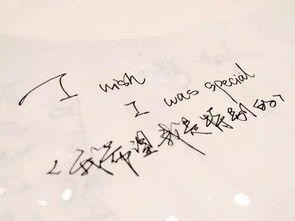 I wish
I was special
(我希望我是特别的)